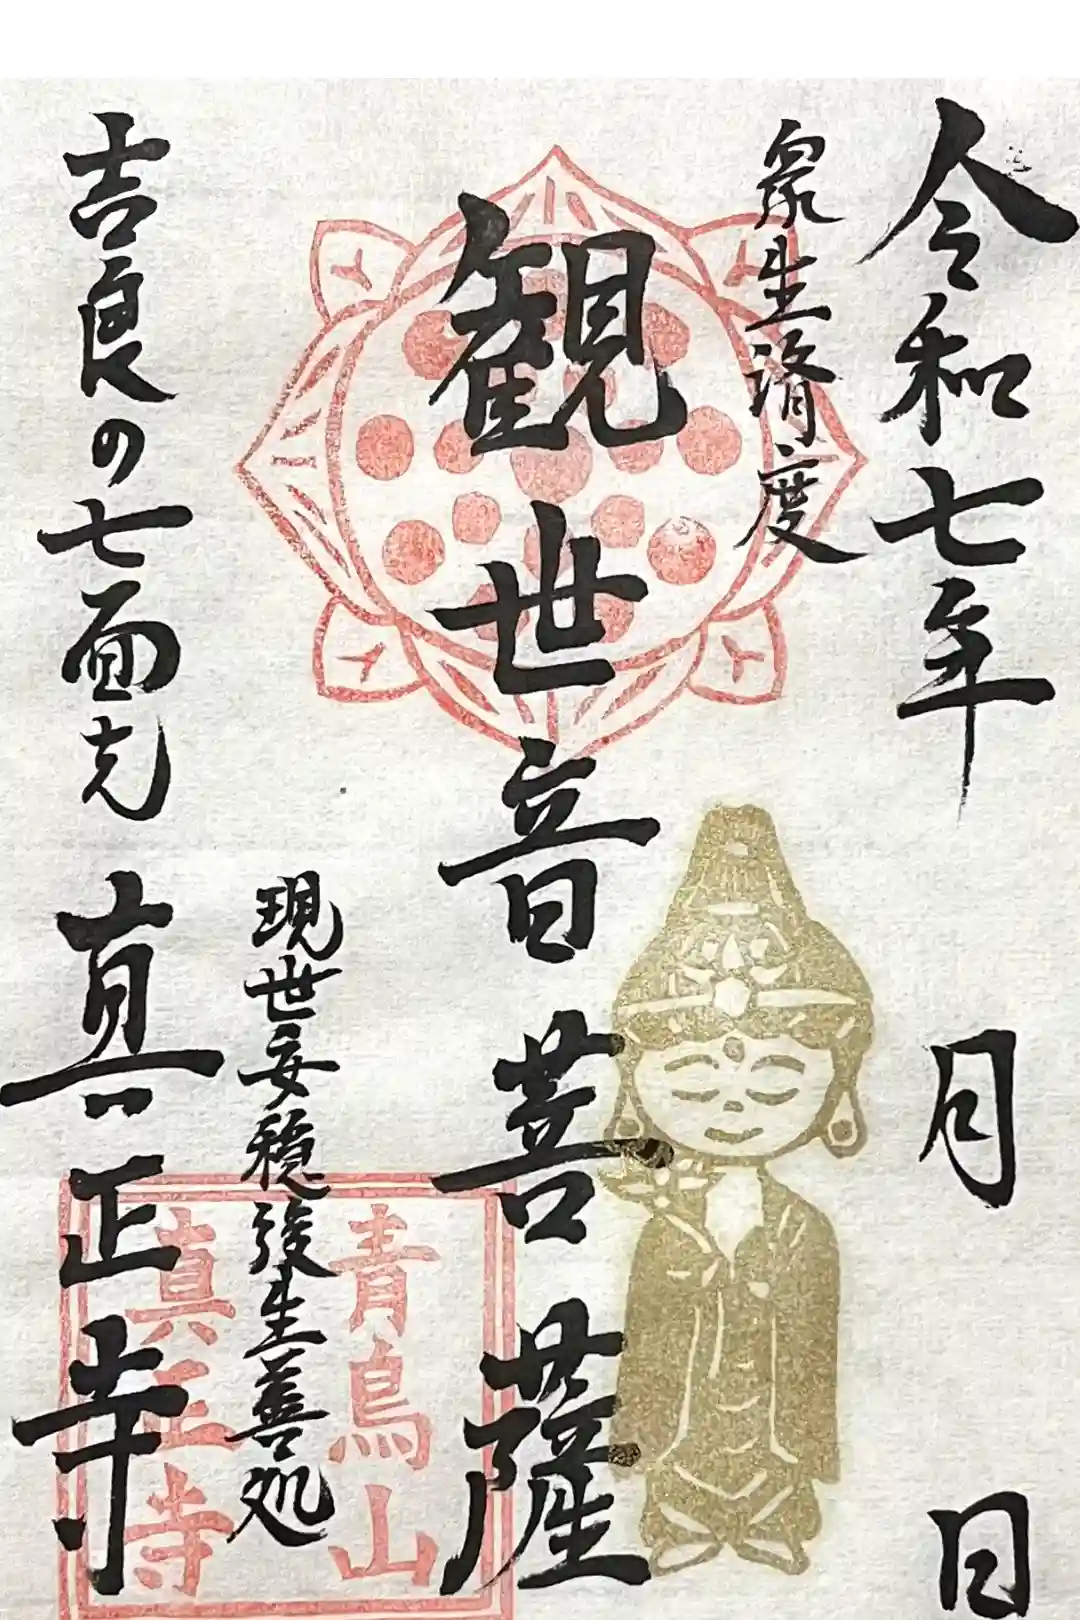 令和七年 月 日
衆生済度
観世音菩薩
現世安穏後生善処
吉良の七面光 真正寺
青鳥山
真正寺